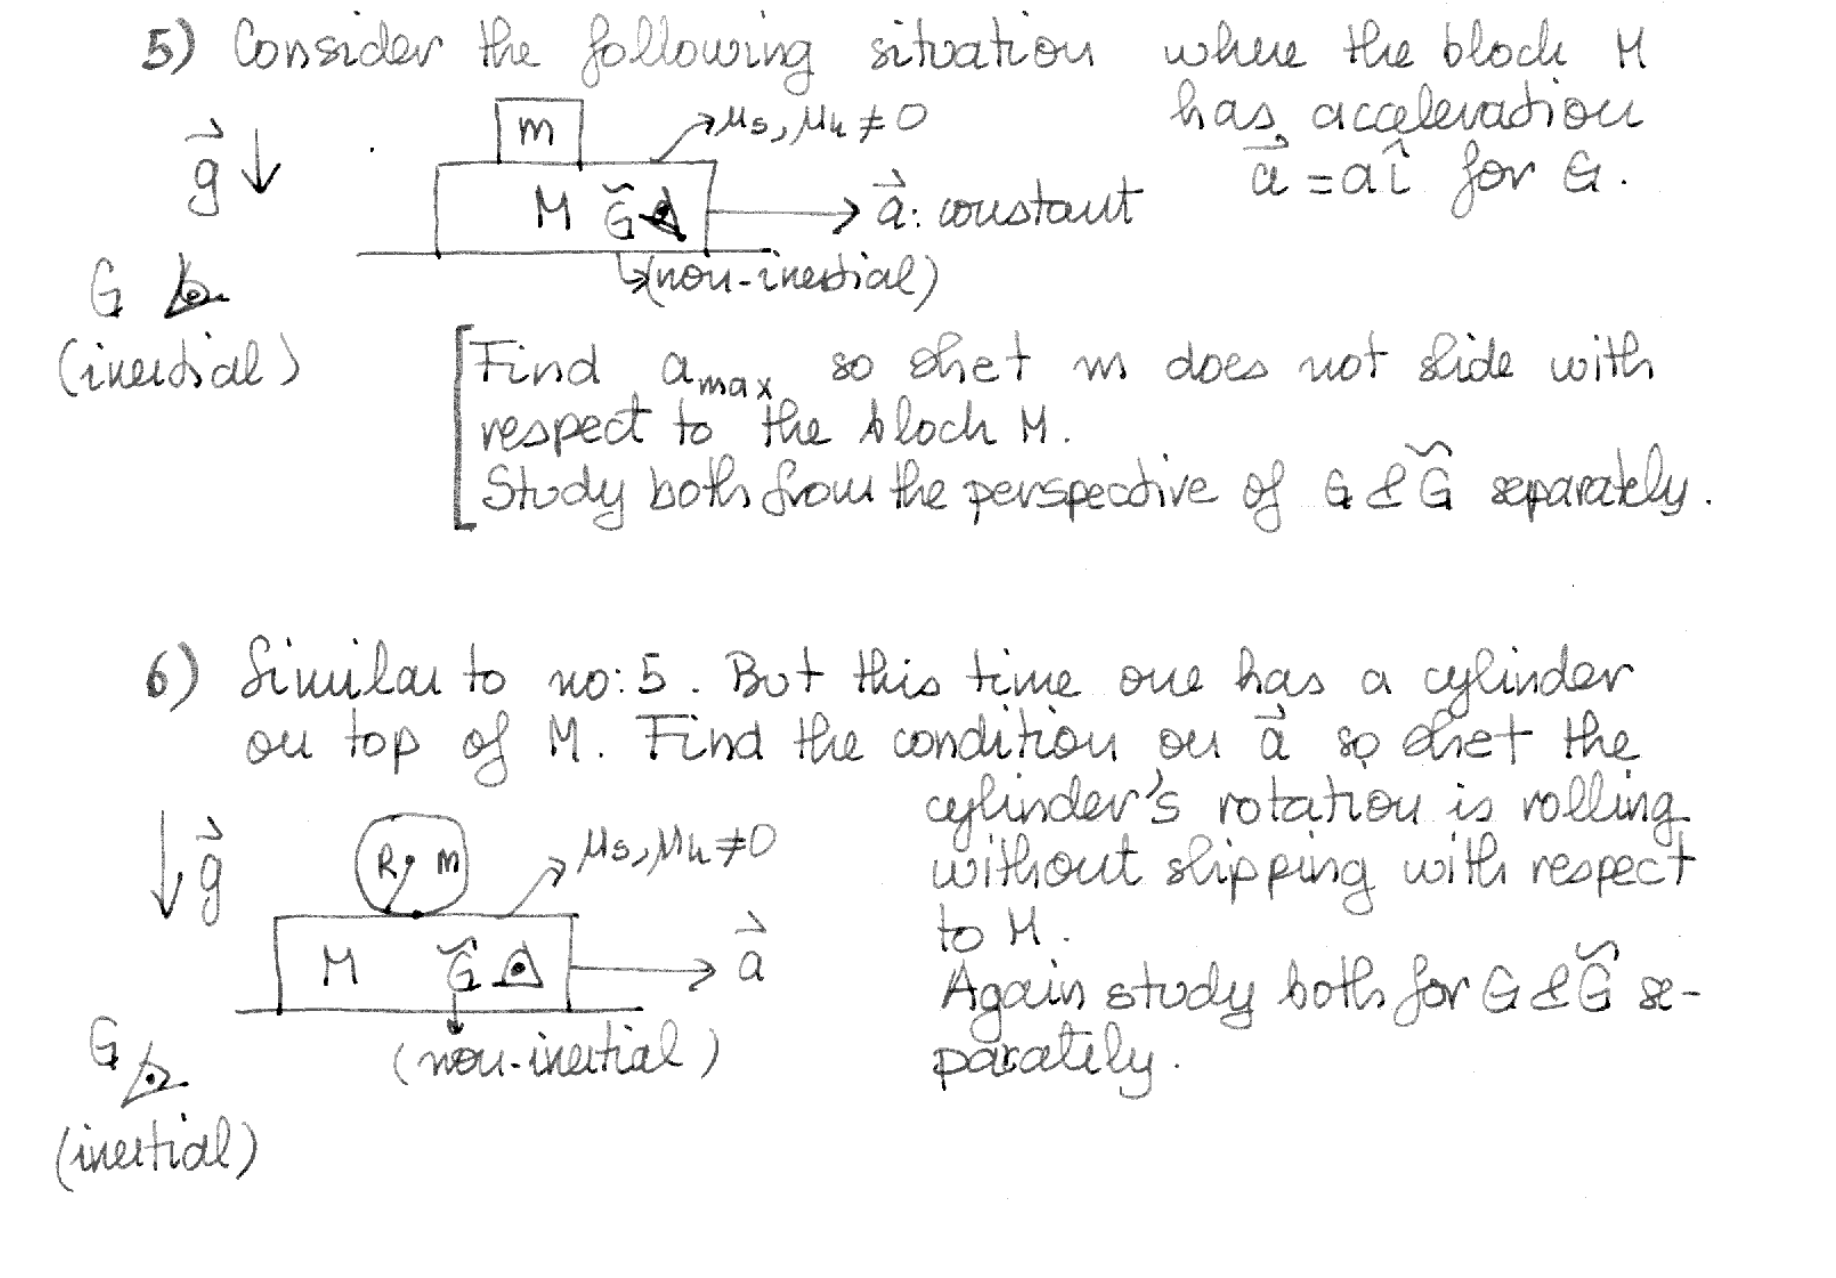 5) Consider the following situation where the block M
has acceleration
a⃗ = a î for G.
g⃗
m
μs, μk ≠ 0
M G̃
a⃗: constant
(non-inertial)
G
(inertial)
Find amax so that m does not slide with
respect to the block M.
Study both from the perspective of G & G̃ separately.
6) Similar to no:5. But this time one has a cylinder
on top of M. Find the condition on a⃗ so that the
cylinder's rotation is rolling
without slipping with respect
to M.
Again study both for G & G̃ se-
parately.
g⃗
R m
μs, μk ≠ 0
M G̃
a⃗
(non-inertial)
G
(inertial)